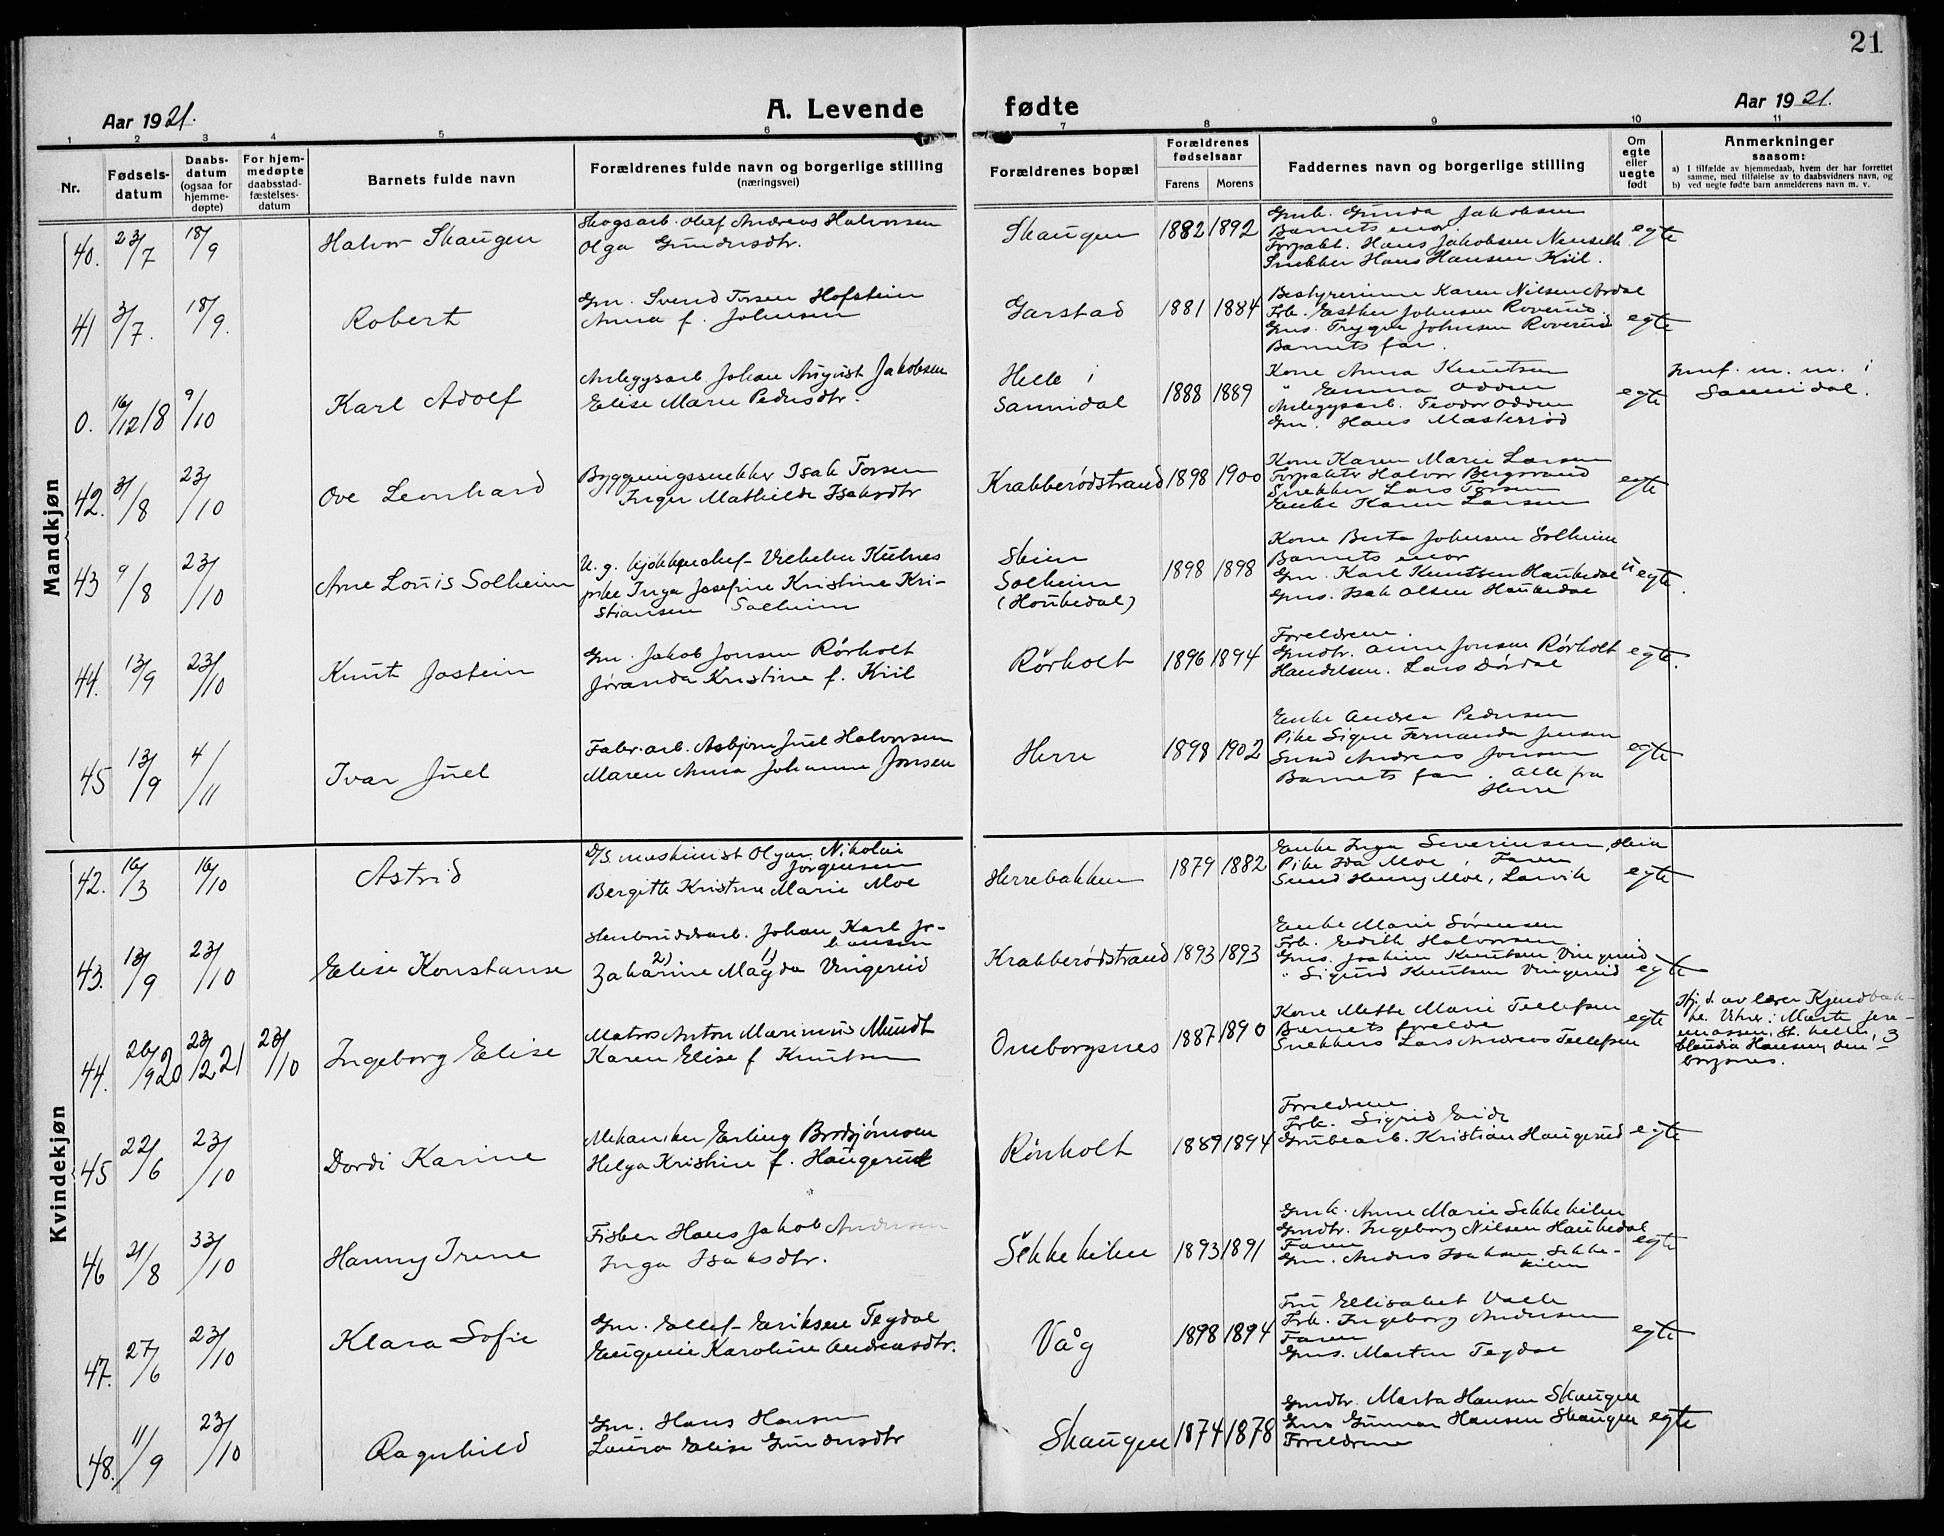 21
Aar 1921.
A. Levende fødte
Aar 1921.
1 2 3 4 5 6 7 8 9 10 11
Nr.
Fødsels-
datum
Daabs-
datum
(ogsaa for
hjemme-
døpte)
For hjem-
medøpte
daabsstad-
fæstelses-
datum
Barnets fulde navn
Forældrenes fulde navn og borgerlige stilling
(næringsvei)
Forældrenes bopæl
Forældrenes
fødselsaar
Farens
Morens
Faddernes navn og borgerlige stilling
Om
egte
eller
uegte
født
Anmerkninger
saasom:
a) I tilfælde av hjemmedaab, hvem der har forrettet
samme, med tilføielse av to daabsvidners navn, og
b) ved uegte fødte barn anmelderens navn m. v.
Mandkjøn
40. 23/7 18/9 Halvor Skaugen
Skogsarb. Olaf Andreas Halvorsen
Olga Gundersdtr.
Skaugen 1882 1892
Gmk. Gunda Jakobsen
Barnets mor.
Forpakt. Hans Jakobsen Nenseth
Snekker Hans Hansen Kiil.
egte
41 3/7. 18/9. Robert
Gm. Svend Torsen Hofstein
Anna f. Johnsen
Garstad 1881 1884
Bestyrerinne Karen Nilsen Årdal
Frk. Esther Johnsen Roverud.
Gms. Trygve Johnsen Roverud
Barnets far.
egte
0. 16/12 18 9/10 Karl Adolf
Anlegsarb Johan August Jakobsen
Elise Marie Pedersdtr.
Helle i
Sannidal 1888 1889
Kone Anna Knutsen
" Emma Odden
Anlegsarb. Teodor Odden
Gm. Hans Mæsterrød
egte
Innf. m. m. i
Sannidal.
42. 31/8 23/10 Ove Leonhard
Byggningssnekker Isak Torsen
Inger Mathilde Isaksdtr
Krabberødstrand 1898 1900
Kone Karen Marie Larsen
Forpakter Halvor Bergsrand
Snekker Lars Torsen
Enke Karen Larsen
egte
43 9/8 23/10 Arne Louis Solheim
U. g. kjøkkenchef Vilhelm Kulnes
pike Inga Josefine Kristine Kri-
stiansen Solheim
Skien
Solheim
(Houkedal) 1898 1898
Kone Berta Johnsen Solheim
Barnets mor
Gm. Karl Knutsen Haukedal
Gms. Isak Olsen Haukedal
uegte.
44. 13/9 23/10 Knut Jostein
Gm. Jakob Jonsen Rørholt
Jøranda Kristine f. Kiil
Rørholt 1896 1894
Foreldrene.
Gmdtr. Anne Jonsen Rørholt
Handelsm. Lars Dørdal
egte.
45 13/9 4/11 Ivar Juel
Fabr. arb. Asbjørn Juel Halvorsen
Maren Anna Johanne Jonsen
Herre 1898 1902
Enke Andrea Pedersen
Pike Signe Fernanda Jensen
Smed Andreas Jonsen
Barnets far. Alle fra
Herre
egte
Kvindekjøn
42. 16/3 16/10 Astrid
D/S maskinist Olgar Nikolai
Jørgensen
Bergitte Kristine Marie Moe
Herrebakken 1879 1882
Enke Inga Severinsen, Skien
Pike Ida Moe, Faren
Smed Henry Moe, Larvik
egte
43. 13/9 23/10 Elise Konstanse
Stenbruddsarb. Johan Karl Jo-
hansen
2) 1)
Zakarine Magda Vingereid
Krabberødstrand 1893 1893
Enke Marie Sørensen
Frk. Edith Halvorsen
Gms. Joakim Knutsen Vingereid
" Sigurd Knutsen Vingereid
egte
44. 26/9 20 23/12 21 23/10 Ingeborg Elise
Matros Anton Marinius Mundt
Karen Elise f Knutsen
Omborgsnes 1887 1890
Kone Mette Marie Tellefsen
Barnets foreldre
Snekkers Lars Andreas Tellefsen
egte
Hj. d. av lærer Kjendbak-
ke. Vitner: Marte Jere-
miassen, St. helen, 3
Claudia Hansen, Om-
borgsnes.
45 22/6 23/10 Dordi Karine
Mekaniker Erling Brodsjømoen
Helga Kristine f. Haugerud
Rørholt 1889 1894
Foreldrene
Frk. Sigrid Eide
Grubearb. Kristian Haugerud
egte
46 21/8 33/10 Hanny Irene
Fisker Hans Jakob Andersen
Inga Isaksdtr.
Sekkekilen 1893 1891
Gmk. Anne Marie Sekkekilen
Gmdtr. Ingeborg Nilsen Haukedal
Faren
Gm. Anders Isaksen Sekke-
kilen
egte
47. 27/6 23/10 Klara Sofie
Gm. Ellef Eriksen Tegdal
Eugenie Karoline Andreasdtr.
Våg 1898 1894
Fru Elisabet Valle
Frk. Ingeborg Andersen
Faren
Gms. Martin Tegdal
egte
48. 11/9 23/10 Ragnhild
Gm. Hans Hansen
Laura Elise Gundersdtr
Skaugen 1874 1878
Gmdtr. Marta Hansen Skaugen
Gms Gunnar Hansen Skaugen
Foreldrene
egte